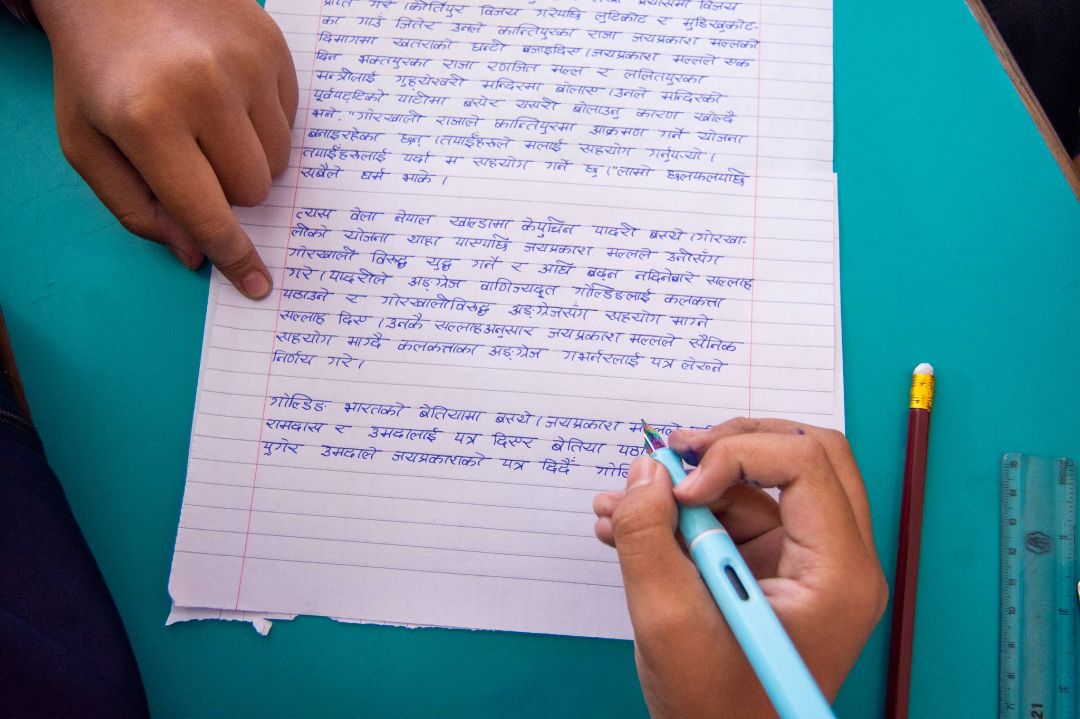 प्राप्त गरे ।कीर्तिपुर विजय गरेपछि लुटिकोट र मुडिखुकोट-
का गाउँ जितेर उनले कान्तिपुरका राजा जयप्रकाश मल्लको
दिमागमा खतराको घन्टी बजाइदिए ।जयप्रकाश मल्लले एक
दिन भक्तपुरका राजा रणजित मल्ल र ललितपुरका
मन्त्रीलाई गुह्येश्वरी मन्दिरमा बोलाए ।उनले मन्दिरको
पूर्वपट्टिको पाटीमा बसेर यसरी बोलाउनु कारण खोल्दै
भने, "गोरखाली राजाले कान्तिपुरमा आक्रमण गर्ने योजना
बनाइरहेका छन् ।तपाईंहरूले मलाई सहयोग गर्नुपऱ्यो ।
तपाईंहरूलाई पर्दा म सहयोग गर्ने छु ।"लामो छलफलपछि
सबैले धर्म भाके ।
त्यस वेला नेपाल खाल्डामा केपुचिन पादरी बस्थे ।गोरखा-
लीको योजना थाहा पाएपछि जयप्रकाश मल्लले उनीसँग
गोरखाली विरुद्ध युद्ध गर्ने र अघि बढ्न नदिनेबारे सल्लाह
गरे ।पादरीले अङ्ग्रेज वाणिज्यदूत गोल्डिङलाई कलकत्ता
पठाउने र गोरखालीविरुद्ध अङ्ग्रेजसँग सहयोग माग्ने
सल्लाह दिए ।उनकै सल्लाहअनुसार जयप्रकाश मल्लले सैनिक
सहयोग माग्दै कलकत्ताका अङ्ग्रेज गभर्नरलाई पत्र लेख्ने
निर्णय गरे।
गोल्डिङ भारतको बेतियामा बस्थे ।जयप्रकाश मल्लले
रामदास र उमदालाई पत्र दिएर बेतिया पठा
पुगेर उमदाले जयप्रकाशको पत्र दिदैं गोल्डि